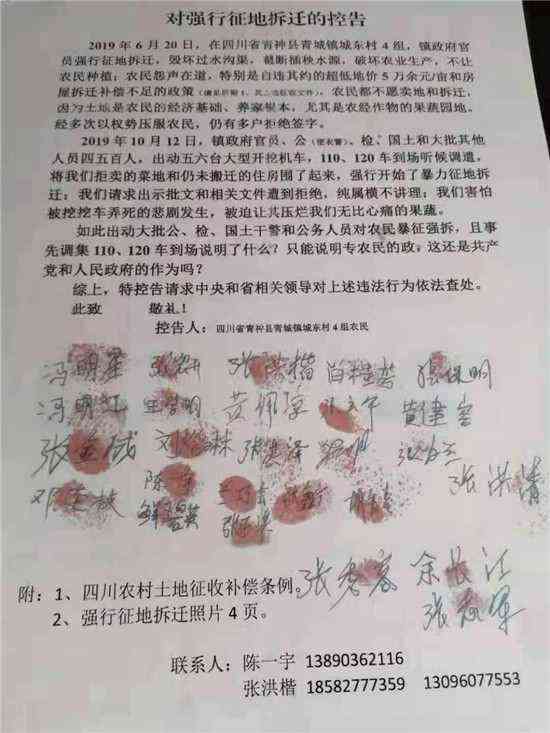 对强行征地拆迁的控告
2019 年 6 月 20 日,在四川省青神县青城镇城东村 4 组,镇政府官
员强行征地拆迁,毁坏过水沟渠,截断插秧水源,破坏农业生产,不让
农民种植;农民怨声在道,特别是自违其约的超低地价 5 万余元/亩和房
屋拆迁补偿不足的政策 农民都不愿卖地和拆迁,
因为土地是农民的经济基础、养家根本,尤其是农经作物的果蔬园地。
经多次以权势压服农民,仍有多户拒绝签字。
2019 年 10 月 12 日,镇政府官员、公(便衣警)、检、国土和大批其他
人员四五百人,出动五六台大型开挖机车,110、120 车到场听候调遣,
将我们拒卖的菜地和仍未搬迁的住房围了起来,强行开始了暴力征地拆
迁;我们请求出示批文和相关文件遭到拒绝,纯属横不讲理;我们害怕
被挖挖车弄死的悲剧发生,被迫让其压烂我们无比心痛的果蔬。
如此出动大批公、检、国土干警和公务人员对农民暴征强拆,且事
先调集 110、120 车到场说明了什么?只能说明专农民的政,这还是共产
党和人民政府的作为吗?
综上,特控告请求中央和省相关领导对上述违法行为依法查处。
此致 敬礼!
控告人:四川省青神县青城镇城东村 4 组农民
冯明星 张洪楷
冯明江
张洪清
余长江
附:1、四川农村土地征收补偿条例。
2、强行征地拆迁照片 4 页。
联系人:陈一宇 13890362116
张洪楷 18582777359 13096077553